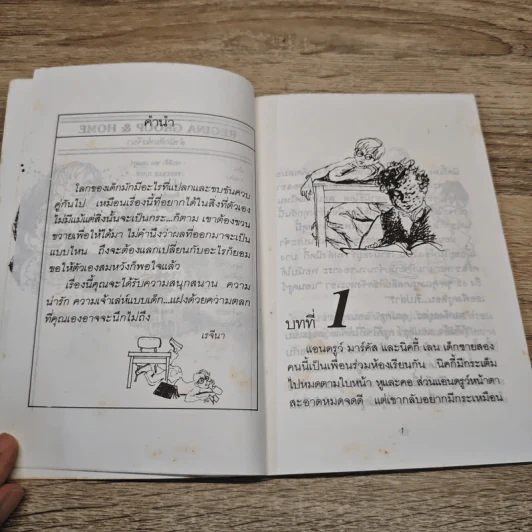 คำนำ
โลกของเด็กมักมีอะไรที่แปลกและขบขันควบ
คู่กันไป เหมือนเรื่องนี้ที่อยากได้ในสิ่งที่ตัวเอง
ไม่มีแม้แต่สิ่งนั้นจะเป็นกระ...ก็ตาม เขาต้องขวน
ขวายเพื่อให้ได้มา ไม่คำนึงว่าผลที่ออกมาจะเป็น
แบบไหน ถึงจะต้องแลกเปลี่ยนกับอะไรก็ยอม
ขอให้ตัวเองสมหวังก็พอใจแล้ว
เรื่องนี้คุณจะได้รับความสนุกสนาน ความ
น่ารัก ความเจ้าเล่ห์แบบเด็ก...แฝงด้วยความตลก
ที่คุณเองอาจจะนึกไม่ถึง
เรจีนา
บทที่ 1
แอนดรูว์ มาร์คัส และนิคกี้ เลน เด็กชายสอง
คนนี้เป็นเพื่อนร่วมห้องเรียนกัน นิคกี้มีกระเต็ม
ไปหมดตามใบหน้า หูและคอ ส่วนแอนดรูว์หน้าตา
สะอาดหมดจดดี แต่เขากลับอยากมีกระเหมือน
1